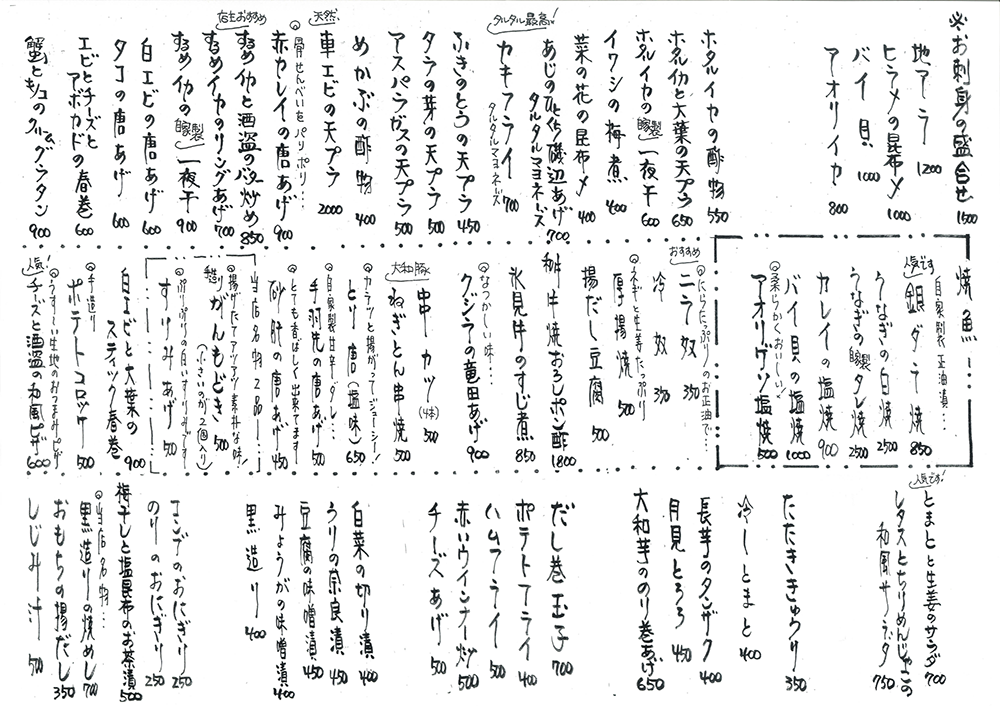 ※お刺身の盛合せ 1500
地アラ 1200
ヒラメの昆布〆 1000
バイ貝 1000
アオリイカ 800
ホタルイカの酢物 550
ホタルイカと大葉の天プラ 650
ホタルイカの自家製一夜干 600
イワシの梅煮 400
菜の花の昆布〆 400
あじのひと口磯辺あげ 700
タルタルマヨネーズ
タルタル最高!
カキフライ 700
タルタルマヨネーズ
ふきのとうの天プラ 450
タラの芽の天プラ 500
アスパラガスの天プラ 500
めかぶの酢物 400
天然、
車エビの天プラ 2000
◎骨せんべいをパリポリ…
赤カレイの唐あげ 900
店主おすすめ
するめイカと酒盗のバター炒め 850
するめイカのリングあげ 700
するめイカの自家製一夜干 900
白エビの唐あげ 600
タコの唐あげ 600
エビとチーズと
アボカドの春巻 600
蟹とキノコのクリームグラタン 900
焼魚…
自家製正油漬…
人気です
銀ダラ焼 850
うなぎの白焼 2500
うなぎの自家製タレ焼 2500
カレイの塩焼 900
バイ貝の塩焼 1000
◎柔らかくおいしい
アオリゲソ塩焼 500
◎にらたっぷりのお正油で…
おすすめ
ニラ奴 350
冷奴 350
◎ネギと生姜たっぷり
厚揚焼 500
揚だし豆腐 500
和牛焼おろしポン酢 1800
氷見牛のすじ煮 850
◎なつかしい味…
クジラの竜田あげ 900
大和豚
串カツ(4本) 500
ねぎとん串焼 500
◎カラッと揚がってジューシー!
とり唐(塩味) 650
◎自家製甘辛ダレ…
手羽先の唐あげ 500
◎とても香ばしく出来てます
砂肝の唐あげ 450
当店名物2品!
◎揚げたてアツアツ!素朴な味!
手造りがんもどき 500
(小さいのが2個入り)
◎ぷりぷりの白いすりみです
すりみあげ 500
白エビと大葉の
スティック春巻 900
◎手造り
ポテトコロッケ 500
◎うすーい生地のおつまみピザ
人気!
チーズと酒盗の和風ピザ 600
とまとと生姜のサラダ 700
人気です!
レタスとちりめんじゃこの
和風サラダ 750
たたききゅうり 350
冷しとまと 400
長芋のタンザク 400
月見とろろ 450
大和芋ののり巻あげ 650
だし巻玉子 700
ポテトフライ 400
ハムフライ 500
赤いウインナー炒 500
チーズあげ 500
白菜の切り漬 400
うりの奈良漬 450
豆腐の味噌漬 450
みょうがの味噌漬 400
黒造り 400
コンブのおにぎり 250
のりのおにぎり 250
梅干しと塩昆布のお茶漬 500
◎当店名物…
黒造りの焼めし 700
おもちの揚だし 350
しじみ汁 500